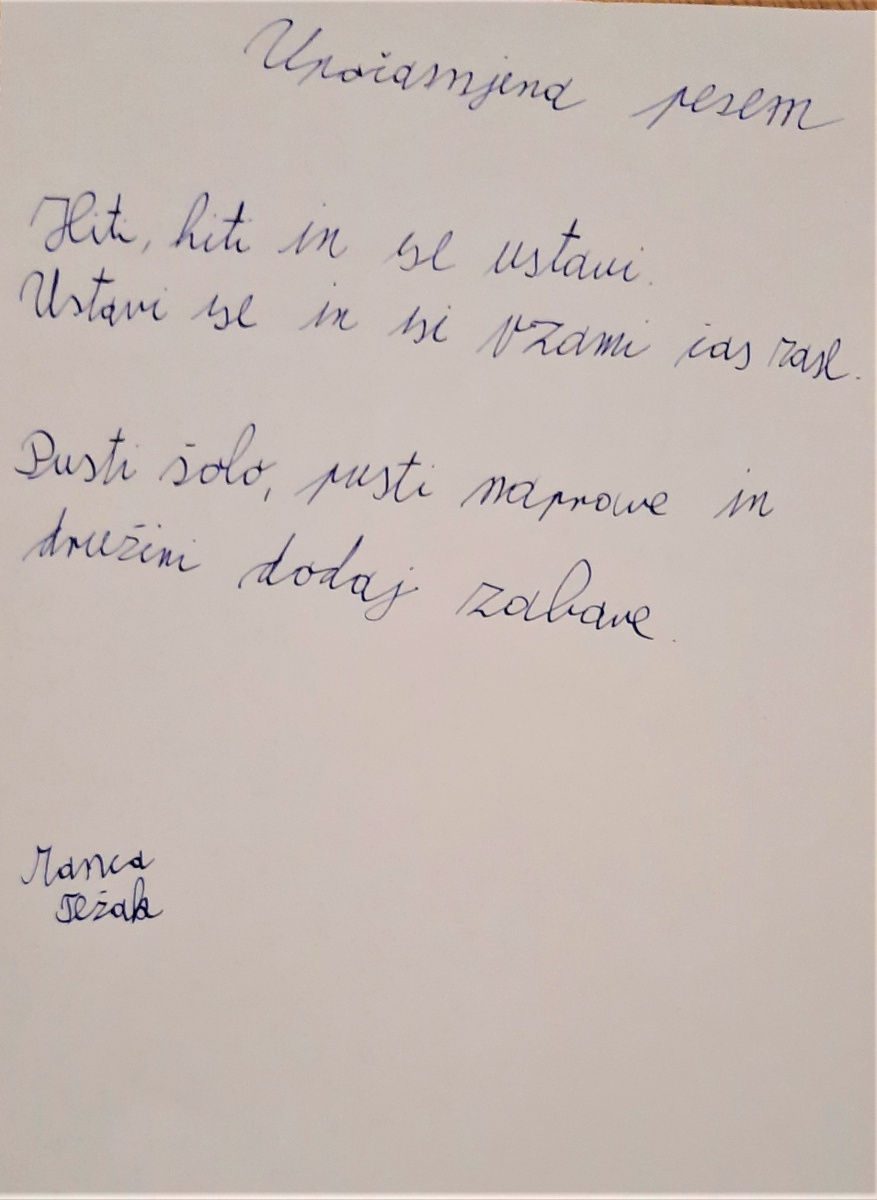 Upočasnjena pesem
Hiti, hiti in se ustavi.
Ustavi se in si vzami čas zase.
Pusti šolo, pusti naprave in
družini dodaj zabave.
Manca
Težak